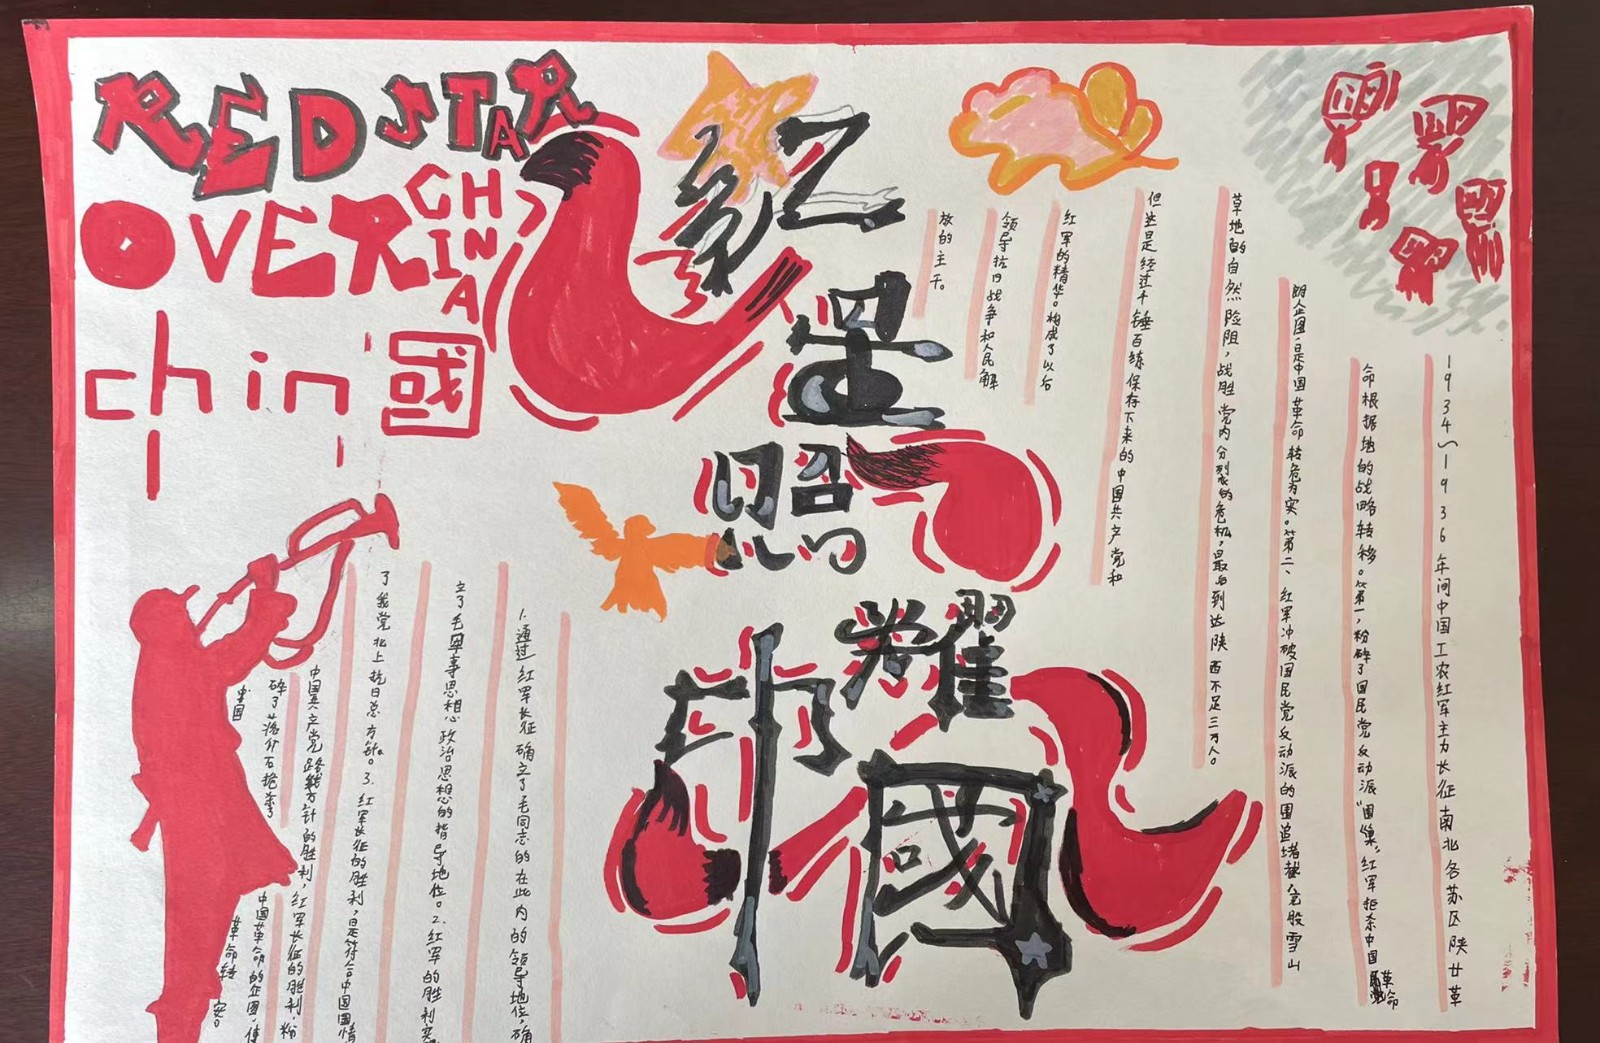 RED STAR
OVER CHINA
chin
國
红星照耀中國
1934～1936年间中国工农红军主力长征南北各苏区陕甘革
命根据地的战略转移。第一，粉碎了国民党反动派“围巢，红军拒杀中国革命
企图，是中国革命转危为实。第二、红军冲破国民党反动派的围追堵截，股雪山
草地的自然险阻，战胜党内分裂的危机，最后到达陕西不足三万人。
但是经过千锤百练保存下来的中国共产党和
红军的精华。构成了以后
领导抗日战争和人民解
放的主干。
1.通过红军长征确立了毛同志的在此内的领导地位，确
立了毛军事思想政治思想的指导地位。2.红军的胜利实
了我党北上抗日总方针。3.红军长征的胜利，是符合中国国情
中国共产党路线方针的胜利，红军长征的胜利，粉
碎了蒋介石抢夺
中国革命的企图，使
中国
革命转安。